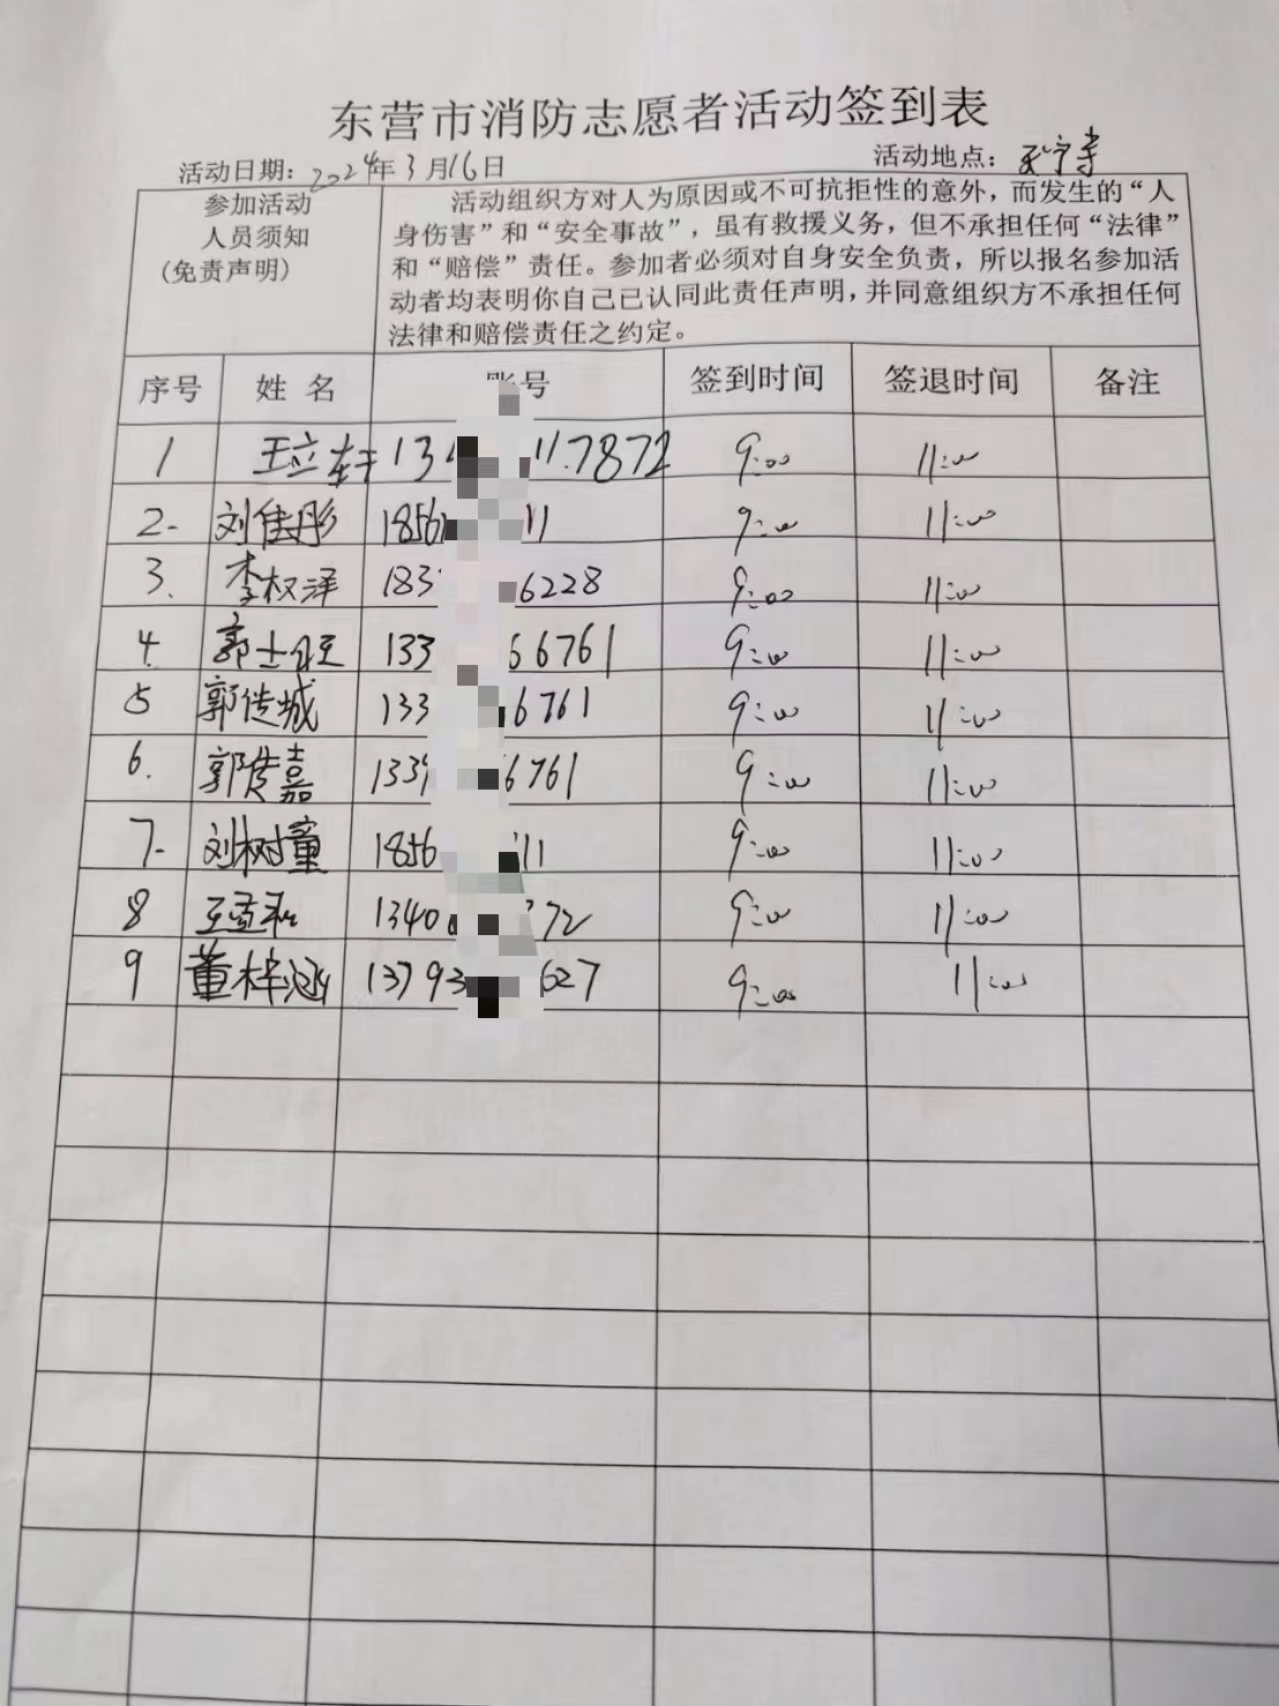 东营市消防志愿者活动签到表
活动日期：2024年3月16日 活动地点：天宁寺
参加活动
人员须知
(免责声明)
活动组织方对人为原因或不可抗拒性的意外，而发生的“人
身伤害”和“安全事故”，虽有救援义务，但不承担任何“法律”
和“赔偿”责任。参加者必须对自身安全负责，所以报名参加活
动者均表明你自己已认同此责任声明，并同意组织方不承担任何
法律和赔偿责任之约定。
序号 姓名 账号 签到时间 签退时间 备注
1 王立轩 13 117872 9:00 11:00
2. 刘佳彤 1856 11 9:00 11:00
3. 李权泽 183 6228 9:00 11:00
4. 郭士 133 66761 9:00 11:00
5 郭传城 133 6761 9:00 11:00
6. 郭 嘉 133 6761 9:00 11:00
7. 刘树童 1856 11 9:00 11:00
8 王 1340 72 9:00 11:00
9 董梓涵 13793 627 9:00 11:00